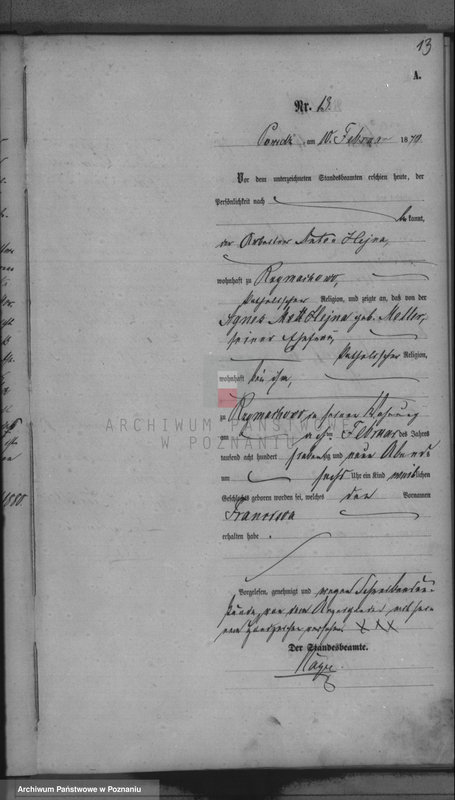 13
A.
Nr. 13.
am 10. Februar 1879.
Vor dem unterzeichneten Standesbeamten erschien heute, der
Persönlichkeit nach
bekannt,
der Arbeiter Anton Hejna,
wohnhaft zu
katholischer Religion, und zeigte an, daß von der
Agnes Hejna geb. Meller,
seiner Ehefrau,
katholischer Religion,
wohnhaft bei ihm,
zu in seiner Wohnung
am Februar des Jahres
tausend acht hundert siebenzig und neun Abends
um sechs Uhr ein Kind weiblichen
Geschlechts geboren worden sei, welches den Vornamen
Franciska
erhalten habe.
Vorgelesen, genehmigt und wegen
von dem mit
Handzeichen versehen. XXX
Der Standesbeamte.
ARCHIWUM PAŃSTWOWE
W POZNANIU
1880.
Archiwum Państwowe w Poznaniu